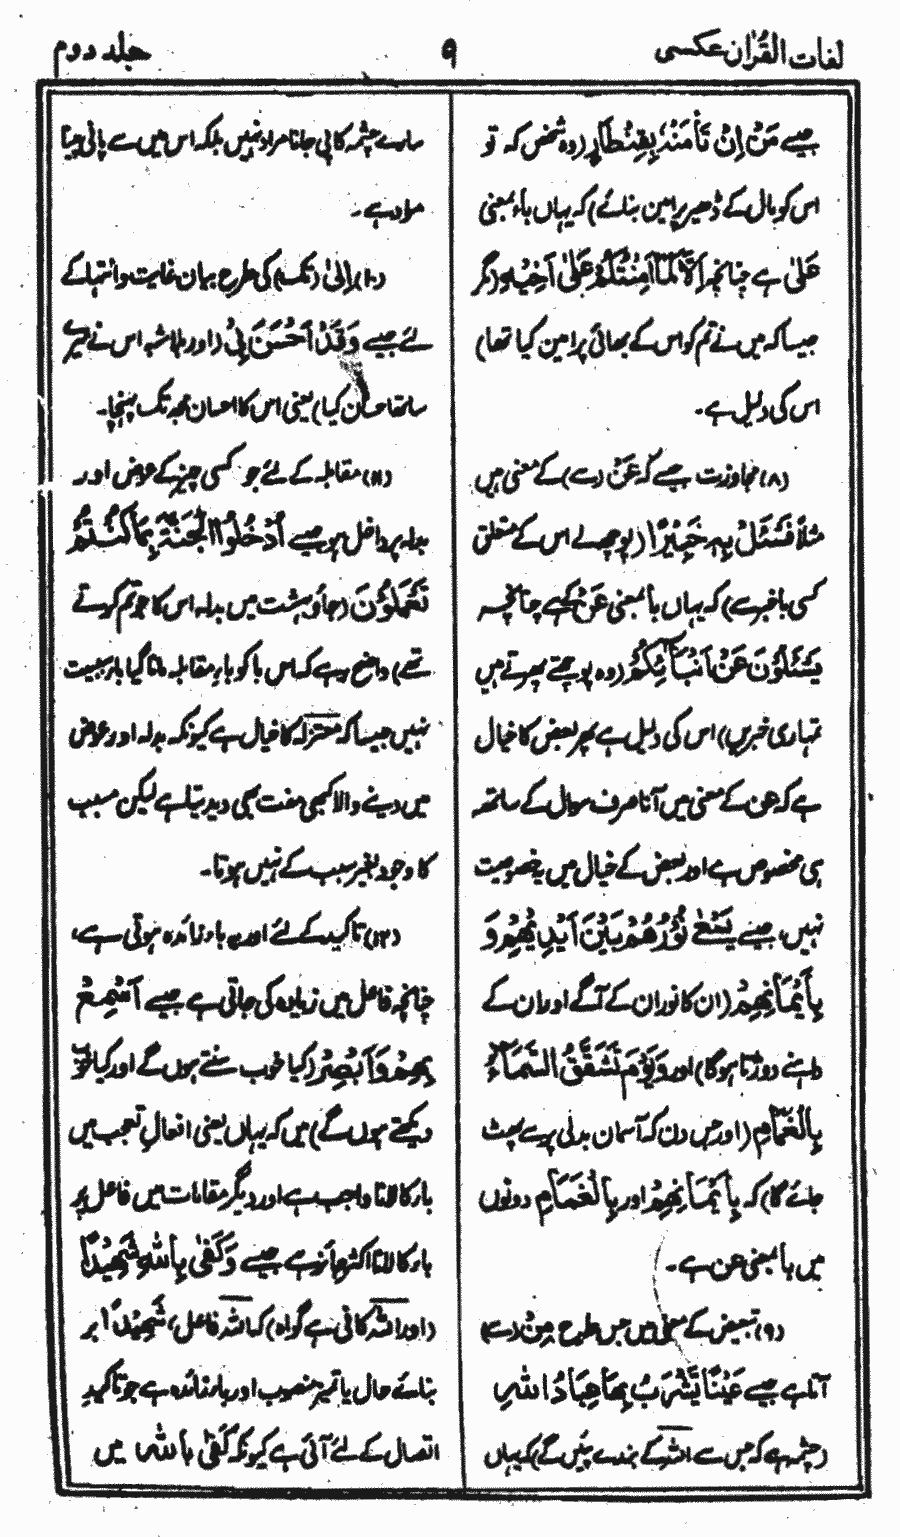 لغات القُرْآن عکسی ۹ جلد دوم
جیسے مَنْ اِنْ تَأْمَنْهُ بِقِنْطَارٍ (وہ شخص کہ تو
اس کو مال کے ڈھیر پر امین بنائے) کہ یہاں باء بمعنی
عَلٰی ہے چنانچہ اِلَّا كَمَاۤ اَمِنْتُكُمْ عَلٰۤى اَخِيْهِ (مگر
جیسا کہ میں نے تم کو اس کے بھائی پر امین کیا تھا)
اس کی دلیل ہے۔
(۸) مجاوزت جیسے کہ عَنْ (سے) کے معنی میں
مثلاً فَسْئَلْ بِهٖ خَبِيْرًا (پوچھ لے اس کے متعلق
کسی باخبر سے) کہ یہاں با بمعنی عَنْ کے ہے چنانچہ
يَسْئَلُوْنَ عَنْ اَنْۢبَآئِكُمْ (وہ پوچھتے پھرتے ہیں
تمہاری خبریں) اس کی دلیل ہے پھر بعض کا خیال
ہے کہ عن کے معنی میں آنا صرف سوال کے ساتھ
ہی مخصوص ہے اور بعض کے خیال میں یہ خصوصیت
نہیں، جیسے يَسْعٰى نُوْرُهُمْ بَيْنَ اَيْدِيْهِمْ وَ
بِاَيْمَانِهِمْ (ان کا نور ان کے آگے اور ان کے
داہنے دوڑتا ہوگا) اور وَيَوْمَ تَشَقَّقُ السَّمَآءُ
بِالْغَمَامِ (اور جس دن کہ آسمان بدلی پر سے پھٹ
جائے گا) کہ بِاَيْمَانِهِمْ اور بِالْغَمَامِ دونوں
میں با بمعنی عن ہے۔
(۹) تبعیض کے معنی میں جس طرح مِنْ (سے)
آتا ہے جیسے عَيْنًا يَّشْرَبُ بِهَا عِبَادُ اللهِ
(چشمہ ہے کہ جس سے اللہ کے بندے پئیں گے) کہ یہاں
سارے چشمہ کا پی جانا مراد نہیں بلکہ اس میں سے پانی پینا
مراد ہے۔
(۱۰) اِلٰی (تک) کی طرح بیان غایت و انتہا کے
لئے جیسے وَقَدْ اَحْسَنَ بِیْ (اور بلاشبہ اس نے میرے
ساتھ احسان کیا) یعنی اس کا احسان مجھ تک پہنچا۔
(۱۱) مقابلہ کے لئے جو کسی چیز کے عوض اور
بدلہ پر داخل ہو جیسے اُدْخُلُوا الْجَنَّةَ بِمَا كُنْتُمْ
تَعْمَلُوْنَ (جاؤ بہشت میں بدلہ اس کا جو تم کرتے
تھے) واضح رہے کہ اس با کو باءِ مقابلہ مانا گیا باء سببیت
نہیں جیسا کہ معتزلہ کا خیال ہے کیونکہ بدلہ اور عوض
میں دینے والا کبھی مفت بھی دیدیتا ہے لیکن مسبب
کا وجود بغیر سبب کے نہیں ہوتا۔
(۱۲) تاکید کے لئے اور یہ باء زائدہ ہوتی ہے،
چنانچہ فاعل میں زیادہ کی جاتی ہے جیسے اَسْمِعْ
بِهِمْ وَاَبْصِرْ (کیا خوب سنتے ہوں گے اور کیا خوب
دیکھتے ہوں گے) میں کہ یہاں یعنی افعالِ تعجب میں
باء کا لانا واجب ہے اور دیگر مقامات میں فاعل پر
باء کا لانا اکثر جائز ہے جیسے وَكَفٰى بِاللهِ شَهِيْدًا
(اور اللہ کافی ہے گواہ) کہ اللہ فاعل، شَهِيْدًا بر
بنائے حال یا تمیز منصوب اور باء زائدہ ہے جو تاکید
اتصال کے لئے آئی ہے کیونکہ كَفٰى بِاللهِ میں